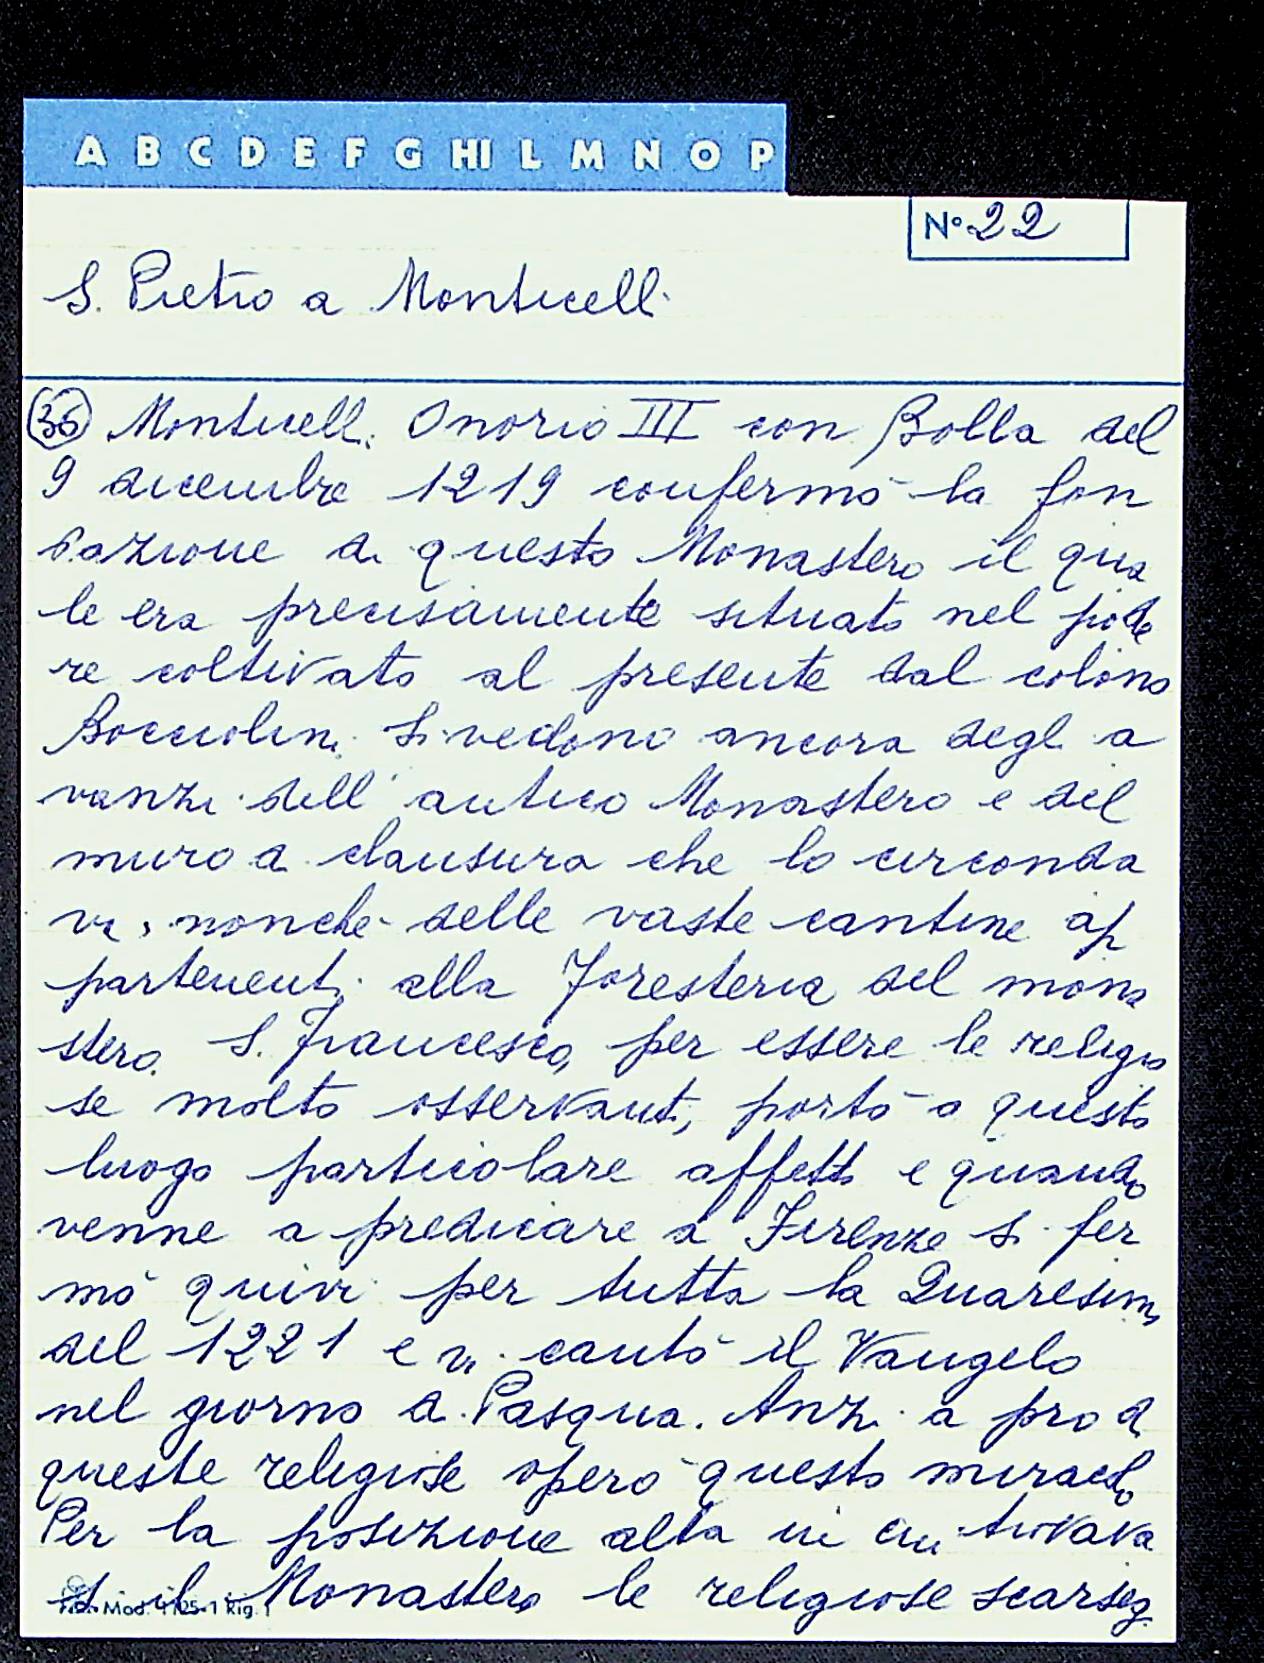 A B C D E F G HI L M N O P
N° 22
S. Pietro a Monticelli
(36) Monticelli. Onorio III con Bolla del
9 dicembre 1219 confermò la fon
dazione di questo Monastero il qua
le era precisamente situato nel pode
re coltivato al presente dal colono
Bocciolini. Si vedono ancora degli a
vanzi dell'antico Monastero e del
muro a clausura che lo circonda
va, nonché delle vaste cantine ap
partenenti alla Foresteria del mona
stero. S. Francesco, per essere le religio
se molto osservanti, portò a questo
luogo particolare affetto e quando
venne a predicare a Firenze si fer
mò quivi per tutta la Quaresima
del 1221 e vi cantò il Vangelo
nel giorno di Pasqua. Anzi a pro di
queste religiose operò questo miracolo
Per la posizione alta in cui trovava
si il Monastero le religiose scarseg
Mod. 1125-1 Rig. 1